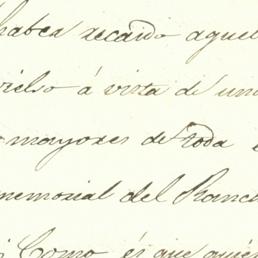 haber recaido aquel
vielso á vista de un
mayores de toda
memorial del Ranc
Como és que quier